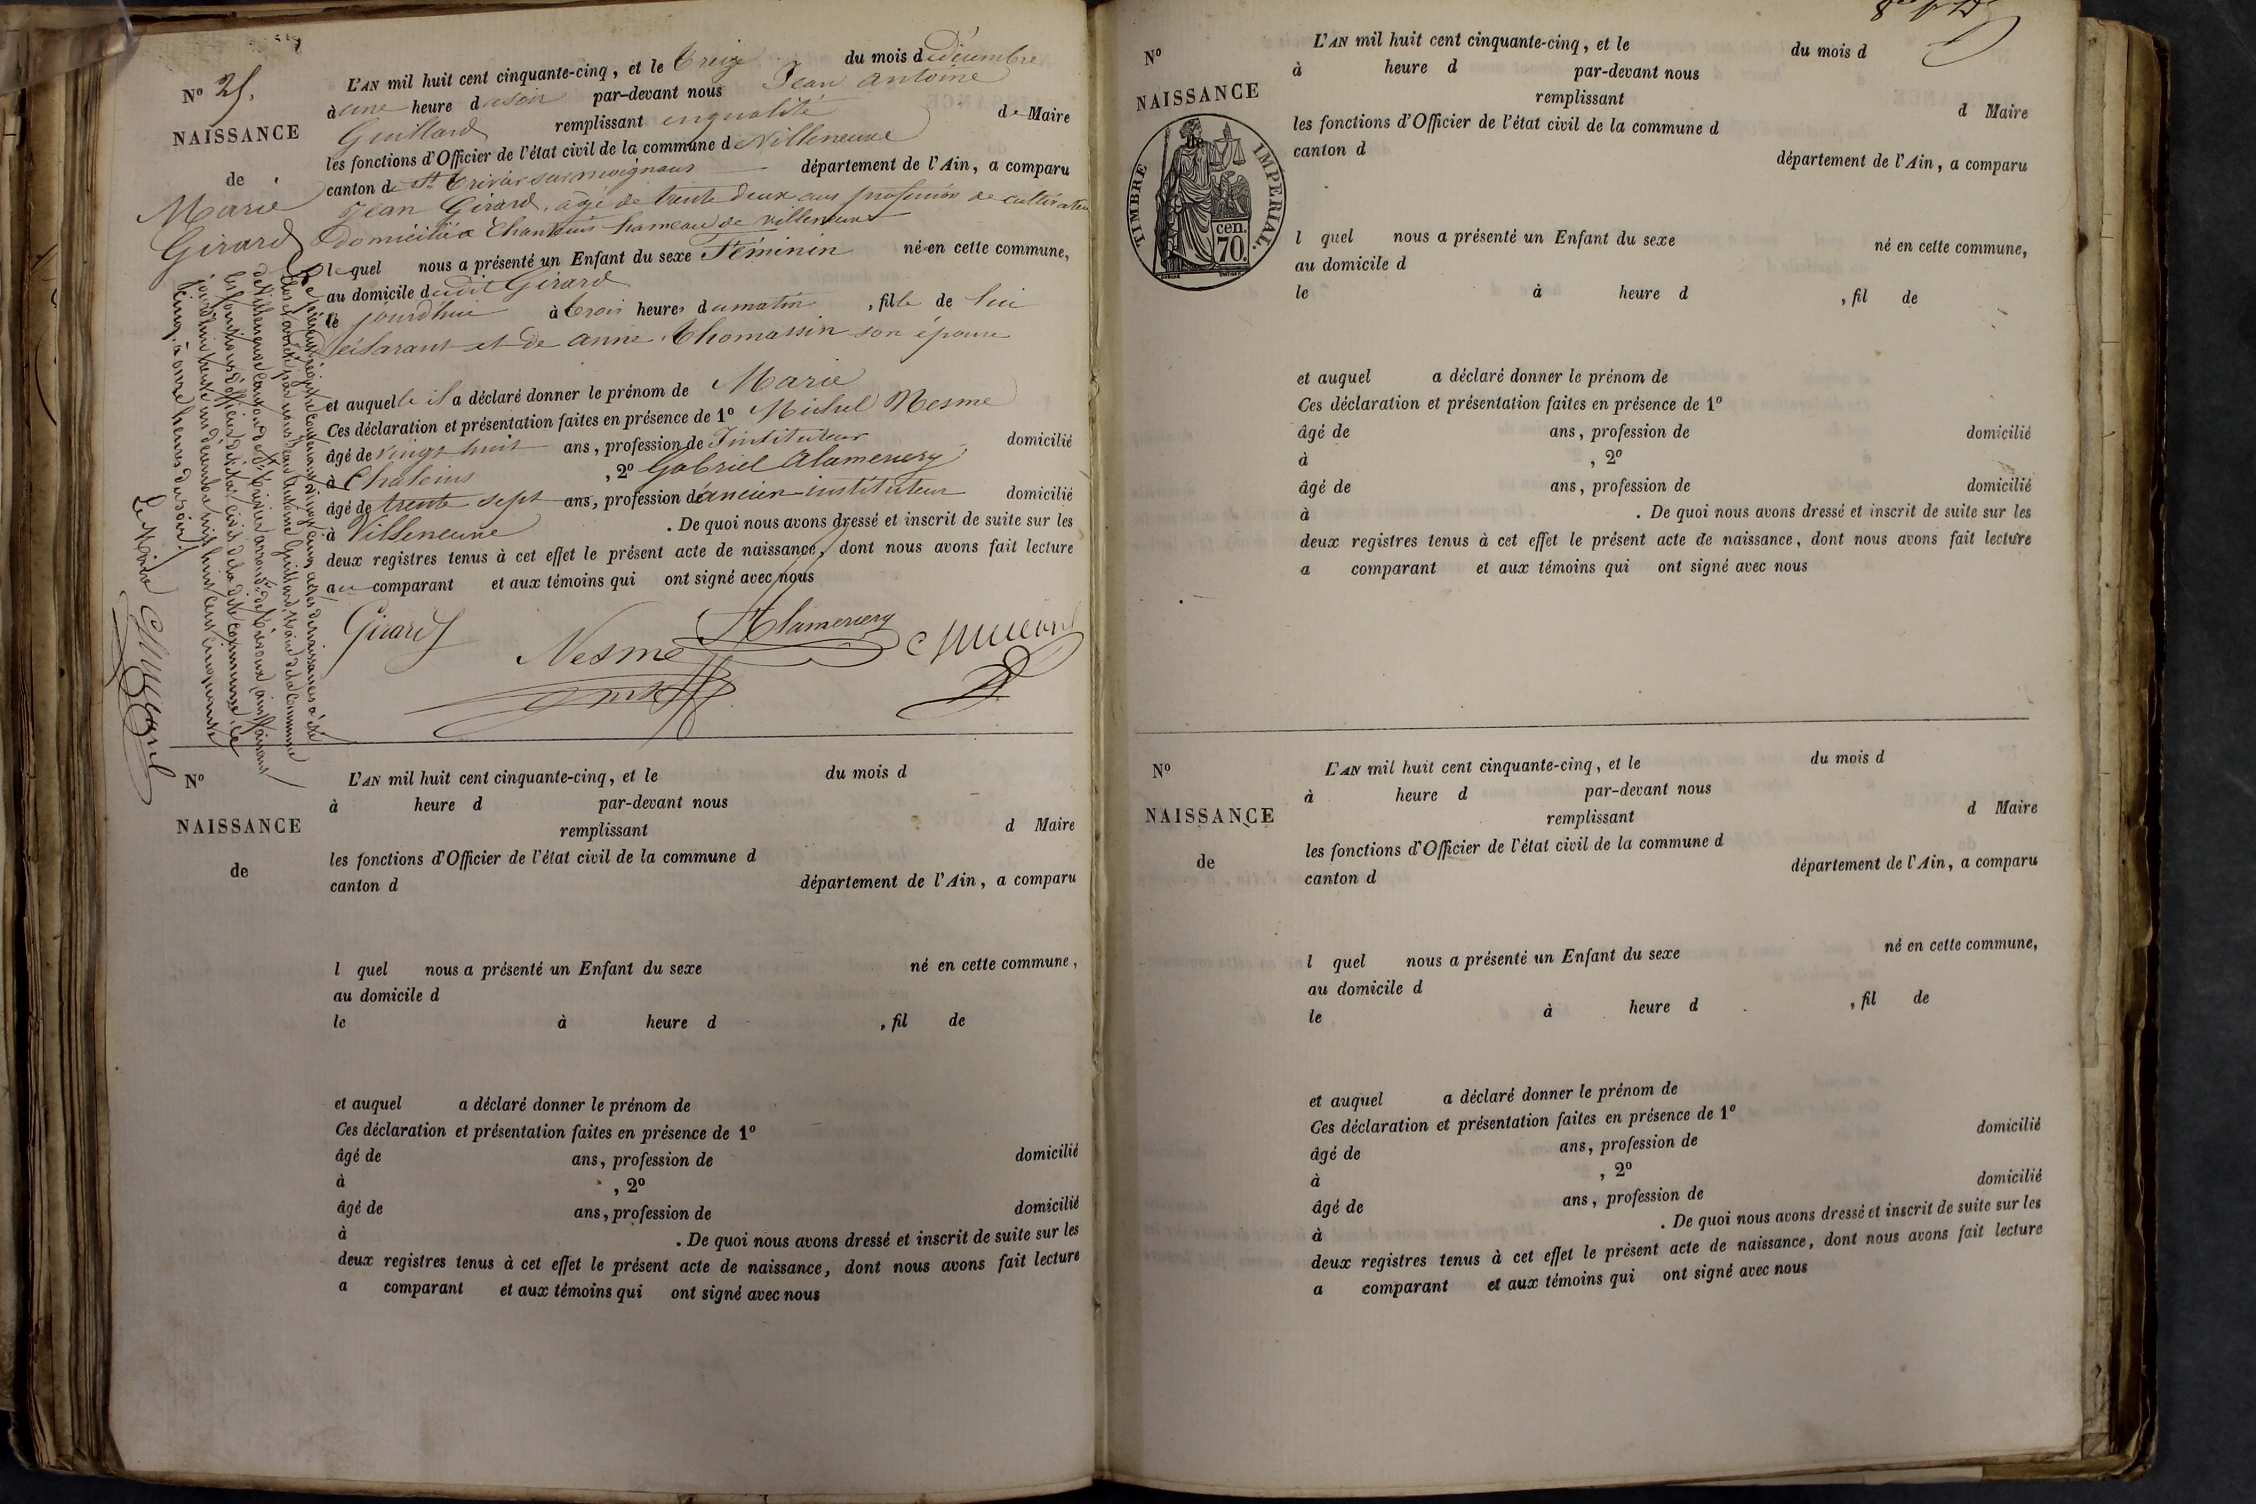 N° 25.
NAISSANCE
de
Marie
Girard
L'AN mil huit cent cinquante-cinq, et le treize du mois de décembre
à une heure du soir par-devant nous Jean Antoine
Guillard remplissant en qualité de Maire
les fonctions d'Officier de l'état civil de la commune de Villeneuve
canton de St Trivier sur moignans département de l'Ain, a comparu
Jean Girard, agé de trente deux ans profession de cultivateur
domicilié à hameau de villeneuve
lequel nous a présenté un Enfant du sexe Féminin né en cette commune,
au domicile dudit Girard
le jourd'hui à trois heures du matin, fille de lui
déclarant et de anne Thomassin son épouse
et auquelle il a déclaré donner le prénom de Marie
Ces déclaration et présentation faites en présence de 1° Michel Nesme
âgé de vingt huit ans, profession de Instituteur domicilié
à Chaleins, 2° Gabriel Alamercery
âgé de trente sept ans, profession d'ancien instituteur domicilié
à Villeneuve. De quoi nous avons dressé et inscrit de suite sur les
deux registres tenus à cet effet le présent acte de naissance, dont nous avons fait lecture
au comparant et aux témoins qui ont signé avec nous
Girard
Nesme
Alamercery
Le présent registre contenant vingt cinq actes de naissances a été
clos et arrêté par nous Jean Antoine Guillard, Maire de la Commune
de Villeneuve canton de St Trivier arrond. de Trévoux (ain) faisant
les fonctions d'officier de l'état civil de la dite commune, le
jourd'hui trente un décembre mil huit cent cinquante
cinq, à onze heures du soir.
Le Maire
N°
NAISSANCE
de
L'AN mil huit cent cinquante-cinq, et le du mois d
à heure d par-devant nous
remplissant d Maire
les fonctions d'Officier de l'état civil de la commune d
canton d département de l'Ain, a comparu
l quel nous a présenté un Enfant du sexe né en cette commune,
au domicile d
le à heure d , fil de
et auquel a déclaré donner le prénom de
Ces déclaration et présentation faites en présence de 1°
âgé de ans, profession de domicilié
à , 2°
âgé de ans, profession de domicilié
à . De quoi nous avons dressé et inscrit de suite sur les
deux registres tenus à cet effet le présent acte de naissance, dont nous avons fait lecture
a comparant et aux témoins qui ont signé avec nous
N°
NAISSANCE
TIMBRE IMPERIAL.
cen.
70.
L'AN mil huit cent cinquante-cinq, et le du mois d
à heure d par-devant nous
remplissant d Maire
les fonctions d'Officier de l'état civil de la commune d
canton d département de l'Ain, a comparu
l quel nous a présenté un Enfant du sexe né en cette commune,
au domicile d
le à heure d , fil de
et auquel a déclaré donner le prénom de
Ces déclaration et présentation faites en présence de 1°
âgé de ans, profession de domicilié
à , 2°
âgé de ans, profession de domicilié
à . De quoi nous avons dressé et inscrit de suite sur les
deux registres tenus à cet effet le présent acte de naissance, dont nous avons fait lecture
a comparant et aux témoins qui ont signé avec nous
N°
NAISSANCE
de
L'AN mil huit cent cinquante-cinq, et le du mois d
à heure d par-devant nous
remplissant d Maire
les fonctions d'Officier de l'état civil de la commune d
canton d département de l'Ain, a comparu
l quel nous a présenté un Enfant du sexe né en cette commune,
au domicile d
le à heure d , fil de
et auquel a déclaré donner le prénom de
Ces déclaration et présentation faites en présence de 1°
âgé de ans, profession de domicilié
à , 2°
âgé de ans, profession de domicilié
à . De quoi nous avons dressé et inscrit de suite sur les
deux registres tenus à cet effet le présent acte de naissance, dont nous avons fait lecture
a comparant et aux témoins qui ont signé avec nous